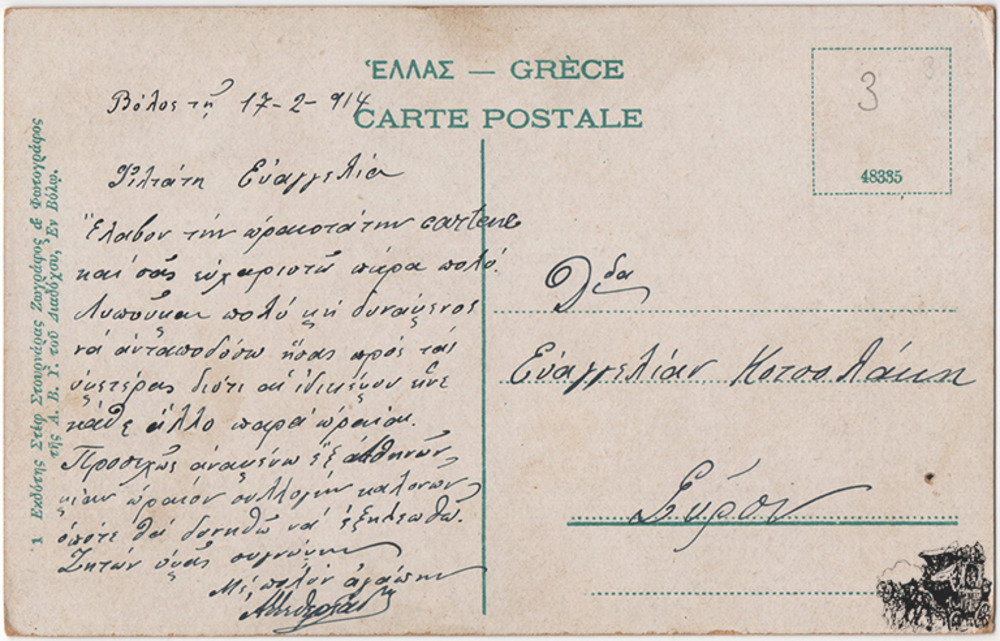 ἙΛΛΑΣ — GRÈCE
CARTE POSTALE
Βόλος τῇ 17-2-914
Φιλτάτη Εὐαγγελία
Ἔλαβον τήν ὡραιοτάτην cartene
καί σᾶς εὐχαριστῶ πάρα πολύ.
Λυποῦμαι πολύ μή δυνάμενος
νά ἀνταποδόσω πρός τάς
ὑμετέρας διότι αἱ εἶνε
κάθε ἄλλο παρά ὡραίαι.
Προσεχῶς ἀναμένω ἐξ Ἀθηνῶν
μίαν ὡραίαν συλλογήν
ὁπότε θά δυνηθῶ νά ἐξιλεωθῶ.
Ζητῶν συγνώμην
Μέ πολλήν ἀγάπην
1 Εκδότης Στέφ Στουρνάρας Ζωγράφος & Φωτογράφος
τῆς Α. Β. Υ. τοῦ Διαδόχου, Ἐν Βόλῳ.
3
48335
Δδα
Εὐαγγελίαν Κοτσολάκη
Σύρον